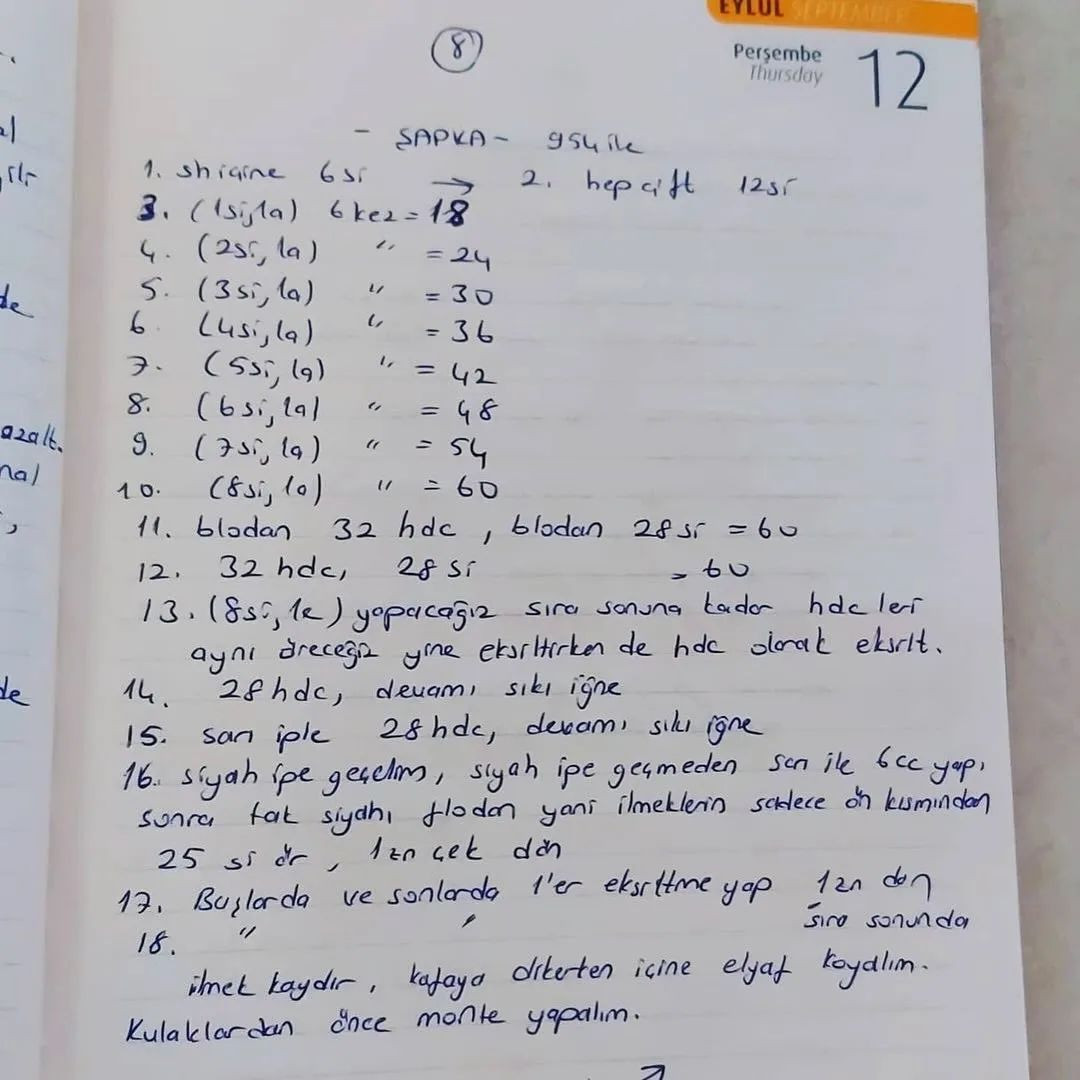 EYLÜL SEPTEMBER
Perşembe
Thursday
12
8
- ŞAPKA - 954 ile
1. shiçine 6 si → 2. hep çift 12si
3. (1si, 1a) 6 kez = 18
4. (2si, 1a) " = 24
5. (3si, 1a) " = 30
6. (4si, 1a) " = 36
7. (5si, 1a) " = 42
8. (6si, 1a) " = 48
9. (7si, 1a) " = 54
10. (8si, 1a) " = 60
11. blodan 32 hdc, blodan 28 si = 60
12. 32 hdc, 28 si = 60
13. (8si, 1e) yapacağız sıra sonuna kadar hdc leri
aynı öreceğiz yine eksiltirken de hdc olarak eksilt.
14. 28 hdc, devamı sıkı iğne
15. sarı iple 28 hdc, devamı sıkı iğne
16. siyah ipe geçelim, siyah ipe geçmeden sarı ile 6 cc yap,
sonra tak siyahı flodan yani ilmeklerin sadece ön kısmından
25 si ör, 1zn çek dön
17. Başlarda ve sonlarda 1'er eksiltme yap 1zn dön
18. " " sıra sonunda
ilmek kaydır, kafaya dikerken içine elyaf koyalım.
Kulaklardan önce monte yapalım.
al
de
azalt.
nal
de